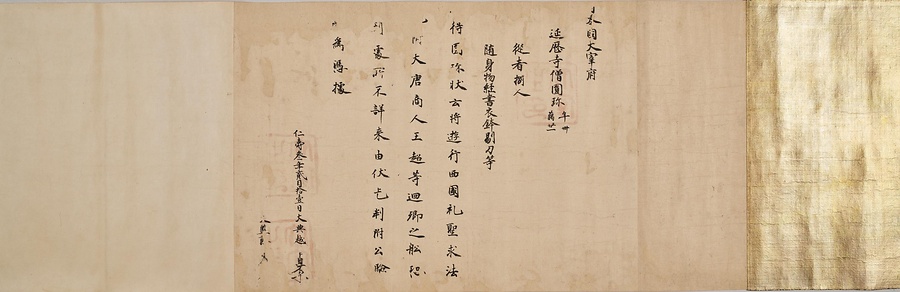 日本国大宰府
延歴寺僧圓珎 年卌 﨟廿一
従者捌人
随身物経書衣鉢剔刀等
得圓珎状云将遊行西國礼聖求法
大唐商人王超等廻郷之舩恐
到處所不詳来由伏乞判附公驗
為憑據
仁壽叁年貳月拾壹日大典越 貞宗